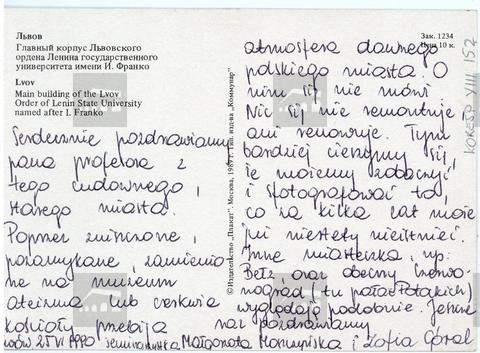 Львов
Главный корпус Львовского
ордена Ленина государственного
университета имени И. Франко
Lvov
Main building of the Lvov
Order of Lenin State University
named after I. Franko
Serdecznie pozdrawiamy
pana profesora z
tego cudownego,
starego miasta.
Poprzez zniszczone,
pozamykane, zamienio-
ne na muzeum
ateizmu lub cerkwie
kościoły przebija
© Издательство „Плакат". Москва, 1989 г. Тип. изд-ва „Коммунар"
Зак. 1234
Цена 10 к.
KORESP VIII 152
atmosfera dawnego
polskiego miasta. O
nim się nie mówi
Nic się nie remontuje
ani renowuje. Tym
bardziej cieszymy się,
że możemy zobaczyć
i sfotografować to,
co za kilka lat może
już niestety nieistnieć.
Inne miasteczka, np:
Bełz, oraz obecny Czerwo-
nograd (tu pałac Potockich)
wyglądają podobnie. Jeszcze
raz pozdrawiamy
Lwów 25 VI 1990 seminarzystka Małgorzata i Zofia Góral